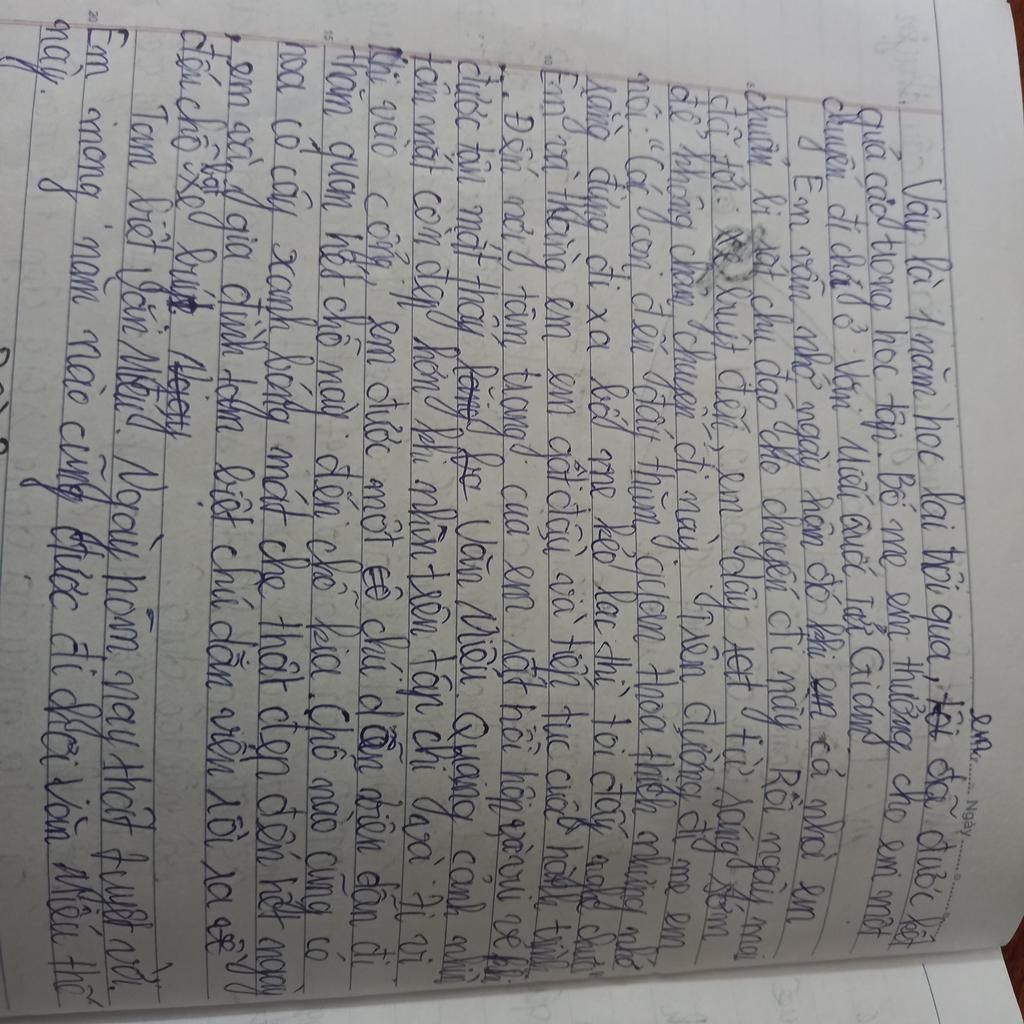 Ngày
em
Vậy là 1 năm học lại trôi qua, tôi đã được kết
quả cao trong học tập. Bố mẹ em thưởng cho em một
chuyến đi chơi ở Văn Miếu Quốc Tử Giám
Em vẫn nhớ ngày hôm đó khi em cả nhà em
chuẩn bị rất chu đáo cho chuyến đi này. Rồi ngày mai
đã tới buýt đến, em dậy rất từ sáng sớm
để không chậm chuyến đi này. Trên đường đi mẹ em
nói: "Các con đến đấy thăm quan thoả thích nhưng nhớ
rằng đừng đi xa bố mẹ kẻo lạc thì tôi đấy nghe chưa"
Em và thằng em em gật đầu và tiếp tục cuộc hành trình
Đến nơi, tâm trạng của em rất hồi hộp và vui vẻ khi
được tận mắt thấy Văn Miếu. Quang cảnh nhìn
tận mắt còn đẹp hơn khi nhìn trên tạp chí hoà ti vi
Khi vào cổng, em được một chú dẫn viên dẫn đi
thăm quan hết chỗ này đến chỗ kia. Chỗ nào cũng có
hoa cỏ cây xanh bóng mát che thật đẹp đến hết ngày
em và gia đình tạm biệt chú dẫn viên rồi ra về
đến chỗ xe buýt
Tạm biệt Văn Miếu. Ngày hôm nay thật tuyệt vời.
Em mong năm nào cũng được đi chơi Văn Miếu thế
này.